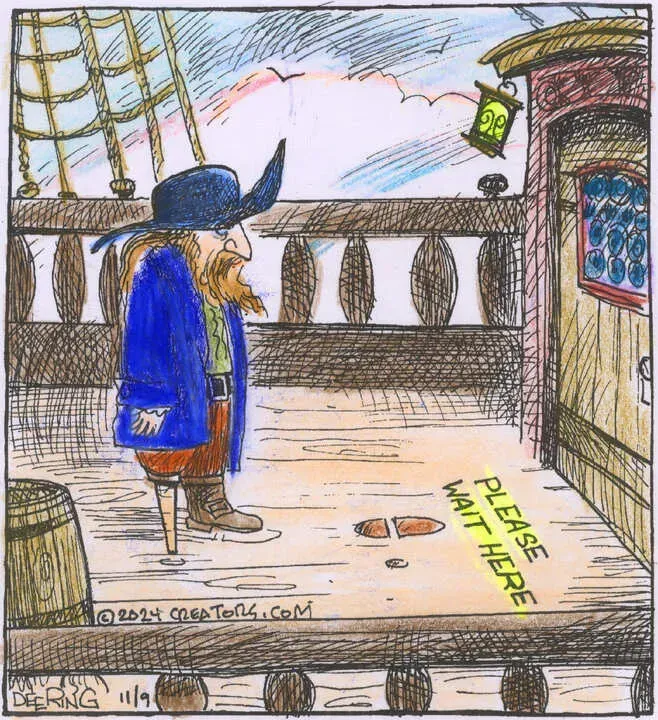 PLEASE
WAIT HERE
©2024 CREATORS.COM
DEERING 11/9